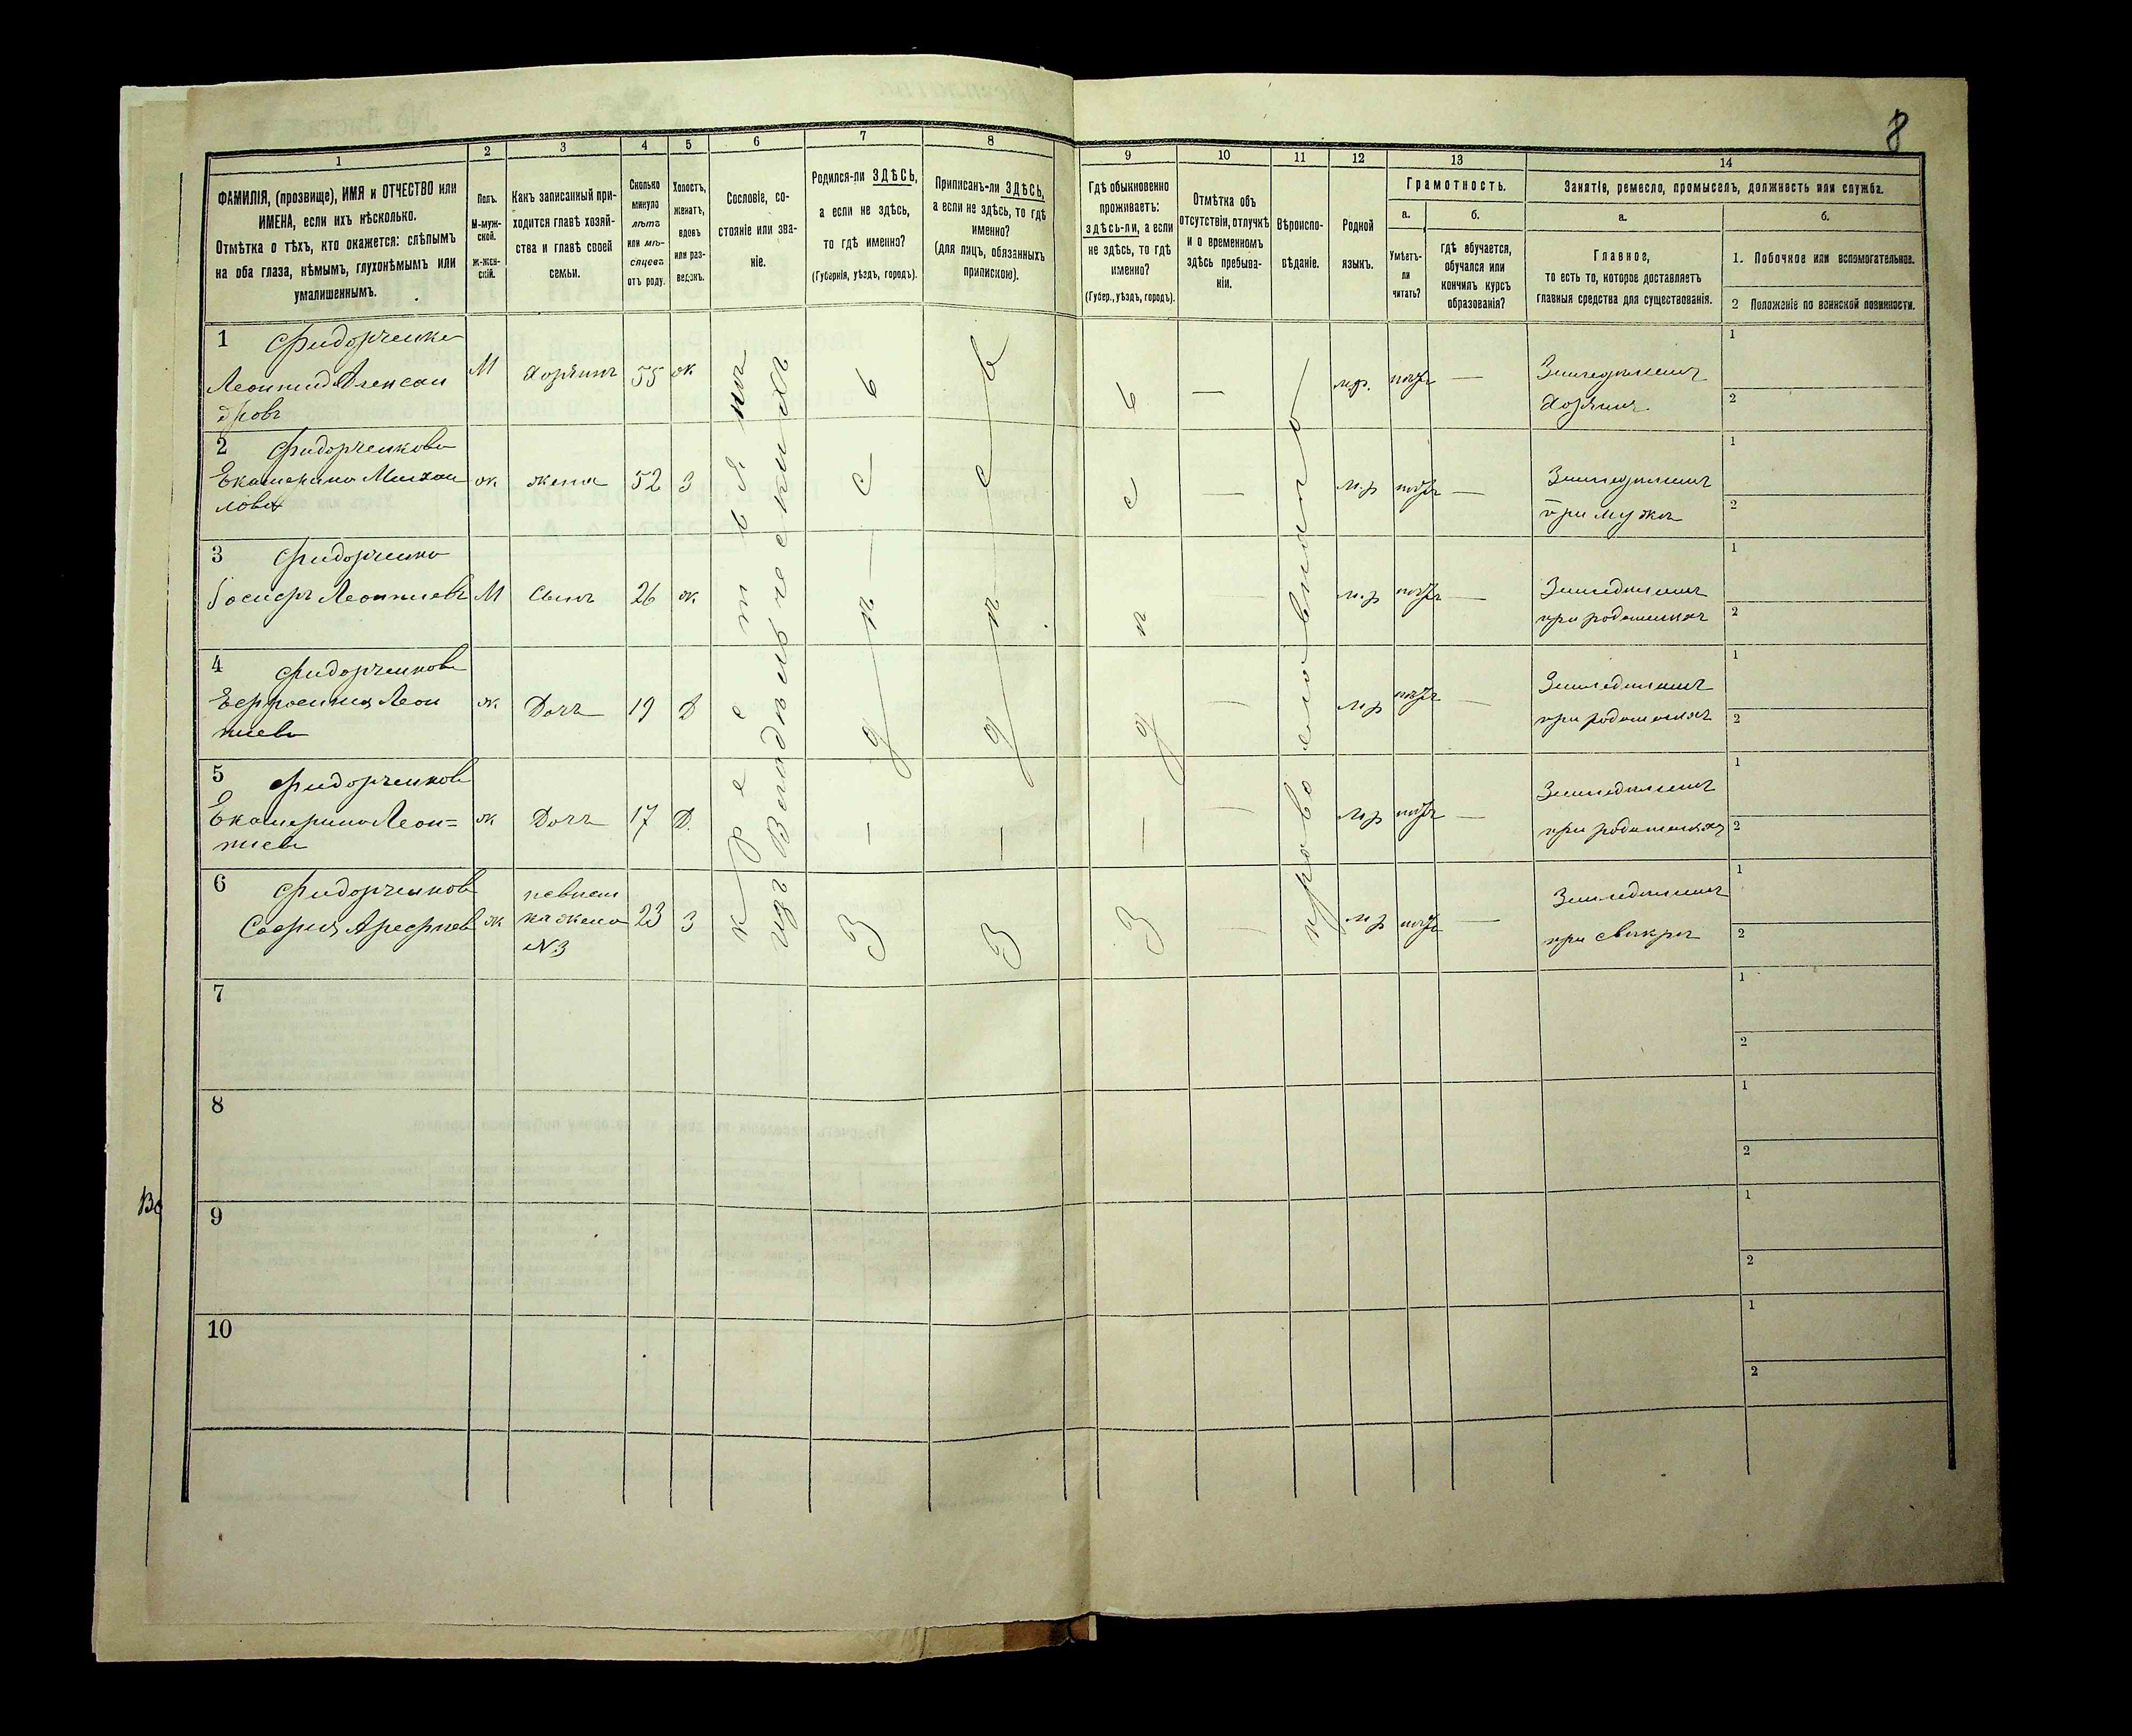 8
1 2 3 4 5 6 7 8 9 10 11 12 13 14
ФАМИЛІЯ, (прозвище), ИМЯ и ОТЧЕСТВО или
ИМЕНА, если ихъ нѣсколько.
Отмѣтка о тѣхъ, кто окажется: слѣпымъ
на оба глаза, нѣмымъ, глухонѣмымъ или
умалишеннымъ.
Полъ.
М-муж-
ской.
ж-жен-
скій.
Какъ записанный при-
ходится главѣ хозяй-
ства и главѣ своей
семьи.
Сколько
минуло
лѣтъ
или мѣ-
сяцевъ
отъ роду.
Холостъ,
женатъ,
вдовъ
или раз-
веденъ.
Сословіе, со-
стояніе или зва-
ніе.
Родился-ли ЗДѢСЬ,
а если не здѣсь,
то гдѣ именно?
(Губернія, уѣздъ, городъ).
Приписанъ-ли ЗДѢСЬ,
а если не здѣсь, то гдѣ
именно?
(для лицъ, обязанныхъ
припискою).
Гдѣ обыкновенно
проживаетъ:
здѣсь-ли, а если
не здѣсь, то гдѣ
именно?
(Губер., уѣздъ, городъ).
Отмѣтка объ
отсутствіи, отлучкѣ
и о временномъ
здѣсь пребыва-
ніи.
Вѣроиспо-
вѣданіе.
Родной
языкъ.
Грамотность.
а.
Умѣетъ-
ли
читать?
б.
гдѣ обучается,
обучался или
кончилъ курсъ
образованія?
Занятіе, ремесло, промыселъ, должность или служба.
а.
Главное,
то есть то, которое доставляетъ
главныя средства для существованія.
б.
1. Побочное или вспомогательное.
2 Положеніе по воинской повинности.
1 Фидорченко
Леонтид Алексан
дровъ
М
хозяинъ
55
ж
м.р.
—
Земледѣлецъ
хозяинъ
1
2
2 Фидорченкова
Екатерина Михаи
лова
ж
жена
52
З
м.р
—
при мужѣ
1
2
3 Фидорченко
Іосифъ Леонтиевъ
М
Сынъ
26
ж
м.р
—
при родителяхъ
1
2
4 Фидорченкова
Ефросиния Леон
тиева
ж
Дочъ
19
Д
м.р
—
при родителяхъ
1
2
5 Фидорченкова
Екатерина Леон=
тиева
ж
Дочъ
17
Д.
м.р
—
при родителяхъ
1
2
6 Фидорченкова
София Арефиева
ж
невѣст
ка жена
№3
23
З
м.р
—
при свекрѣ
1
2
крестьянъ
изъ Владѣльческихъ
Здѣсь
Здѣсь
Здѣсь
православнаго
7
1
2
8
1
2
9
1
2
10
1
2